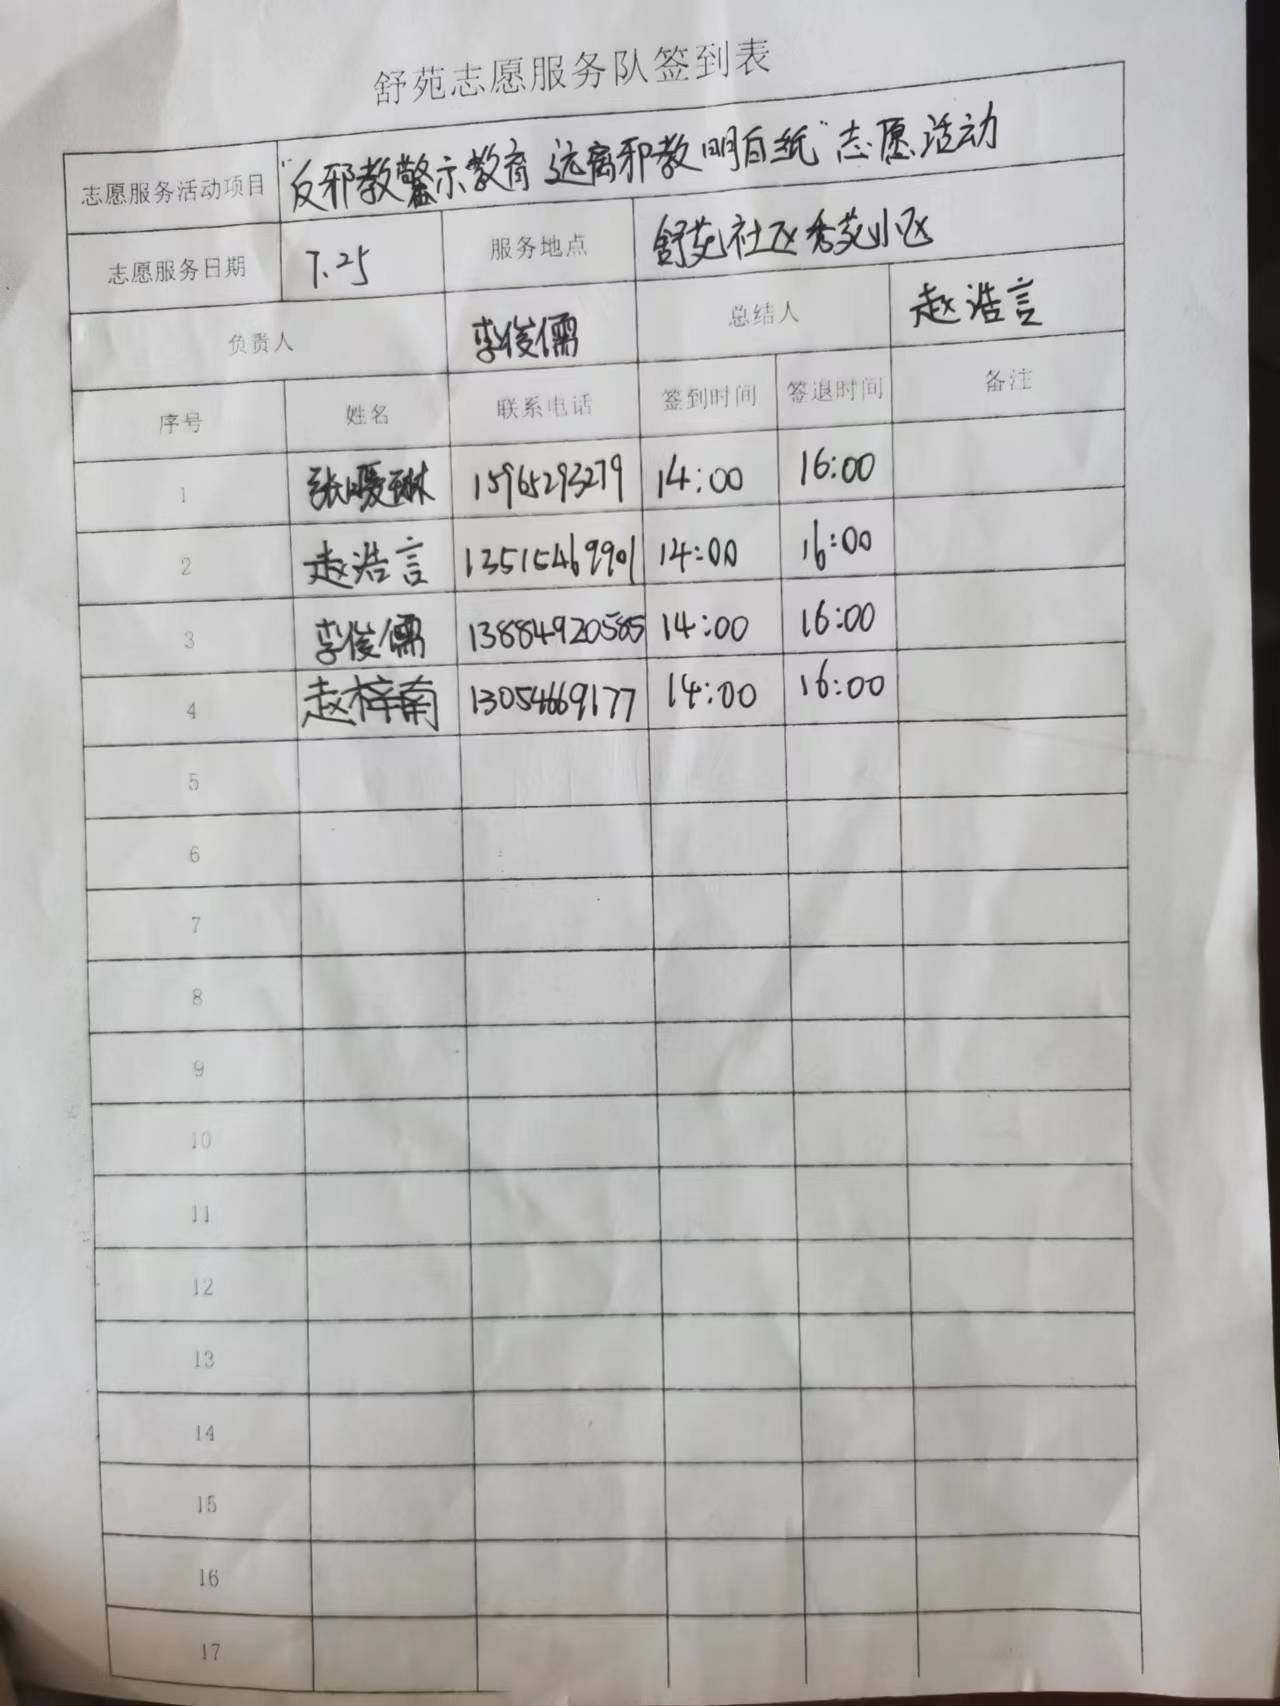 舒苑志愿服务队签到表
志愿服务活动项目 "反邪教警示教育 远离邪教明白纸"志愿活动
志愿服务日期 7.25 服务地点 舒苑社区秀苑小区
负责人 李俊儒 总结人 赵浩言
序号 姓名 联系电话 签到时间 签退时间 备注
1 张暖琳 15965293279 14:00 16:00
2 赵浩言 13515469901 14:00 16:00
3 李俊儒 13884920585 14:00 16:00
4 赵梓南 13054669177 14:00 16:00
5
6
7
8
9
10
11
12
13
14
15
16
17